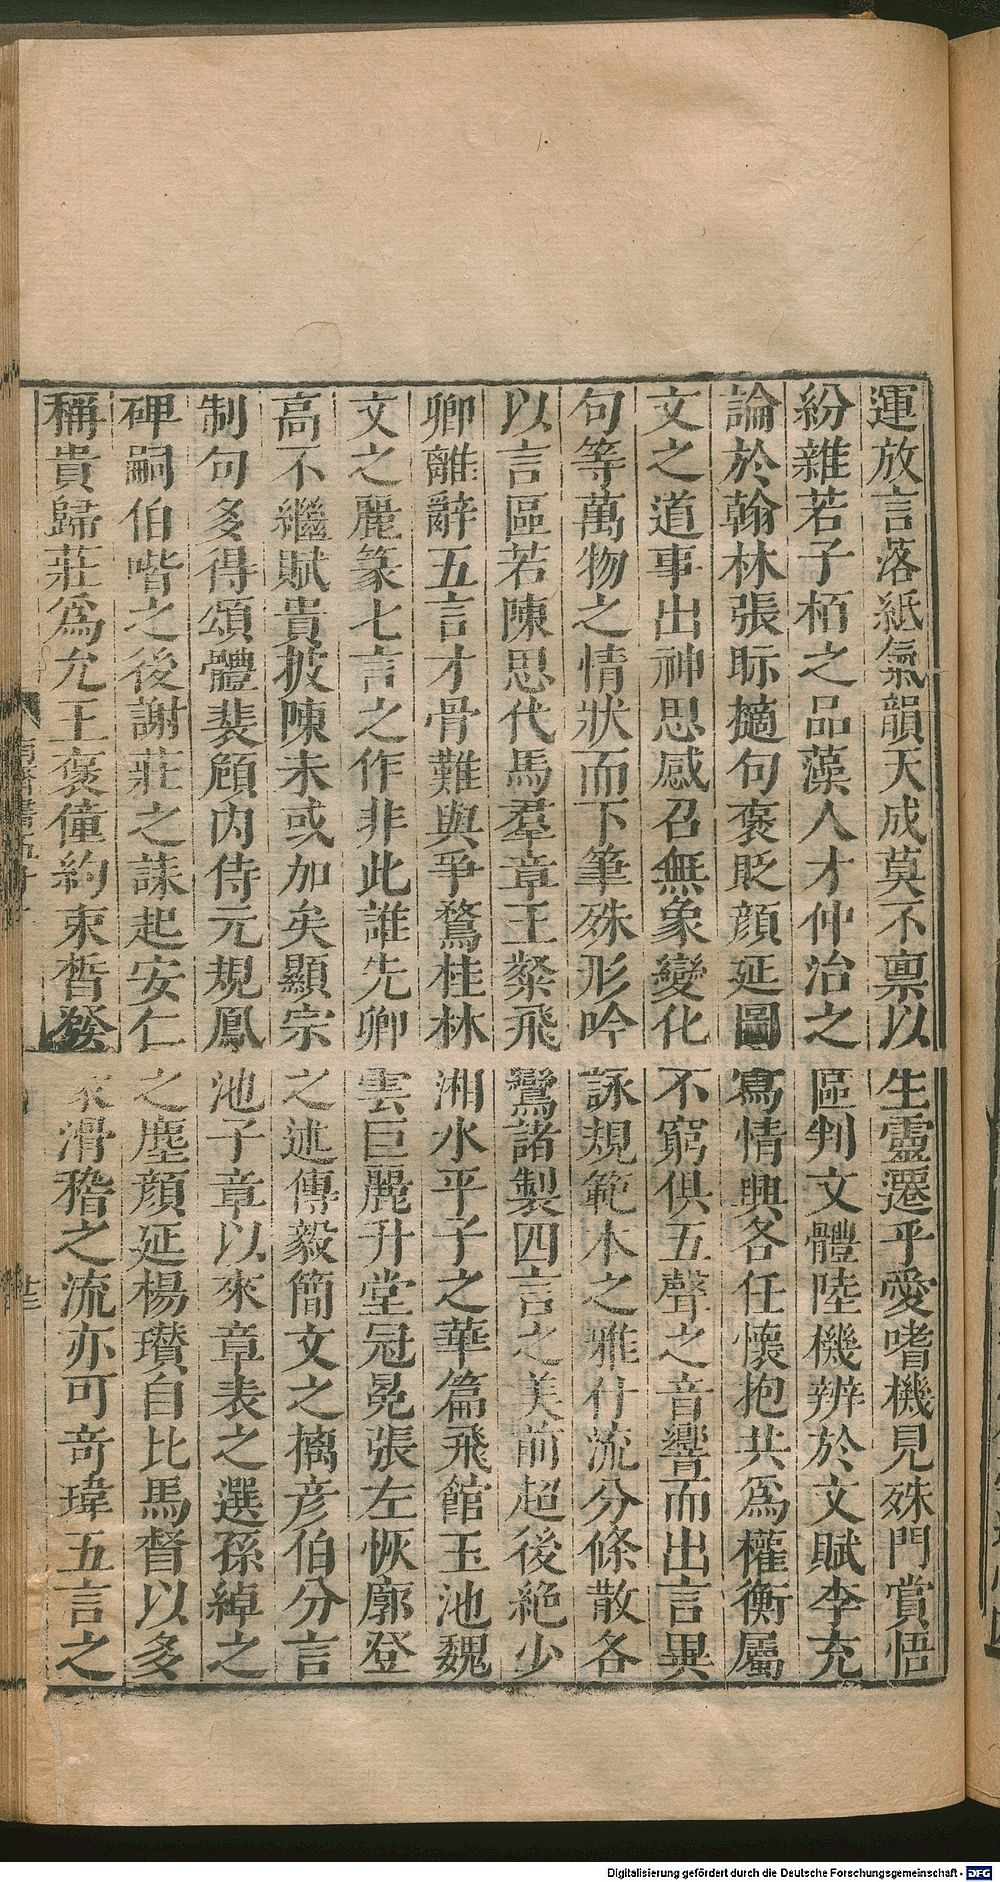 運放言落紙氣韻天成莫不禀以生靈遷乎愛嗜機見殊門賞悟
紛雜若子栢之品藻人才仲治之區判文體陸機辨於文賦李充
論於翰林張眎擿句褒貶顔延圖寫情興各任懷抱共爲權衡屬
文之道事出神思感召無象變化不窮俱五聲之音響而出言異
句等萬物之情狀而下筆殊形吟詠規範本之雅什流分條散各
以言區若陳思代馬羣章王粲飛鸞諸製四言之美前超後絶少
卿離辭五言才骨難與爭鶩桂林湘水平子之華篇飛館玉池魏
文之麗篆七言之作非此誰先卿雲巨麗升堂冠冕張左恢廓登
高不繼賦貴披陳未或加矣顯宗之述傅毅簡文之摛彦伯分言
制句多得頌體裴頠内侍元規鳳池子章以來章表之選孫綽之
碑嗣伯喈之後謝莊之誄起安仁之塵顔延楊瓚自比馬督以多
稱貴歸莊爲允王褒僮約束晳發滑稽之流亦可竒瑋五言之
廿三
Digitalisierung gefördert durch die Deutsche Forschungsgemeinschaft - DFG